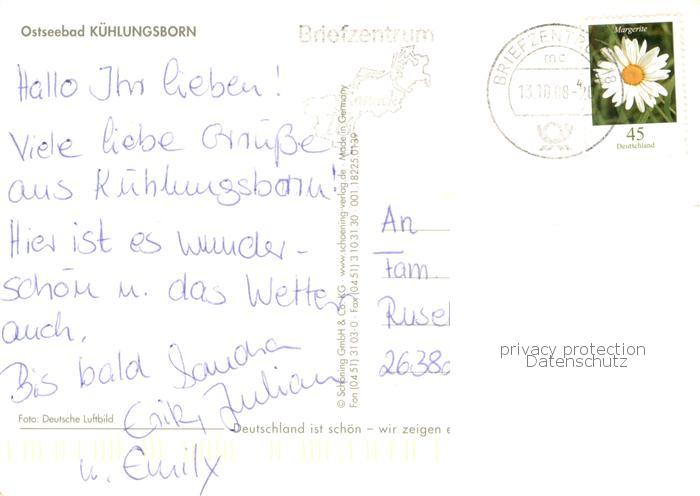 Ostseebad KÜHLUNGSBORN
Hallo Ihr lieben!
Viele liebe Grüße
aus Kühlungsborn!
Hier ist es wunder-
schön u. das Wetter
auch.
Bis bald Sandra
Erik, Julian
u. Emily
Foto: Deutsche Luftbild
Deutschland ist schön – wir zeigen e
© Schöning GmbH & Co. KG · www.schoening-verlag.de · Made in Germany
Fon (0451) 31 03-0 · Fax (0451) 3 10 31 30 · 001 18225 0139
Briefzentrum
BRIEFZENTRUM 18
mc
13.10.08-20
Margerite
45
Deutschland
An
Fam.
2638
privacy protection
Datenschutz